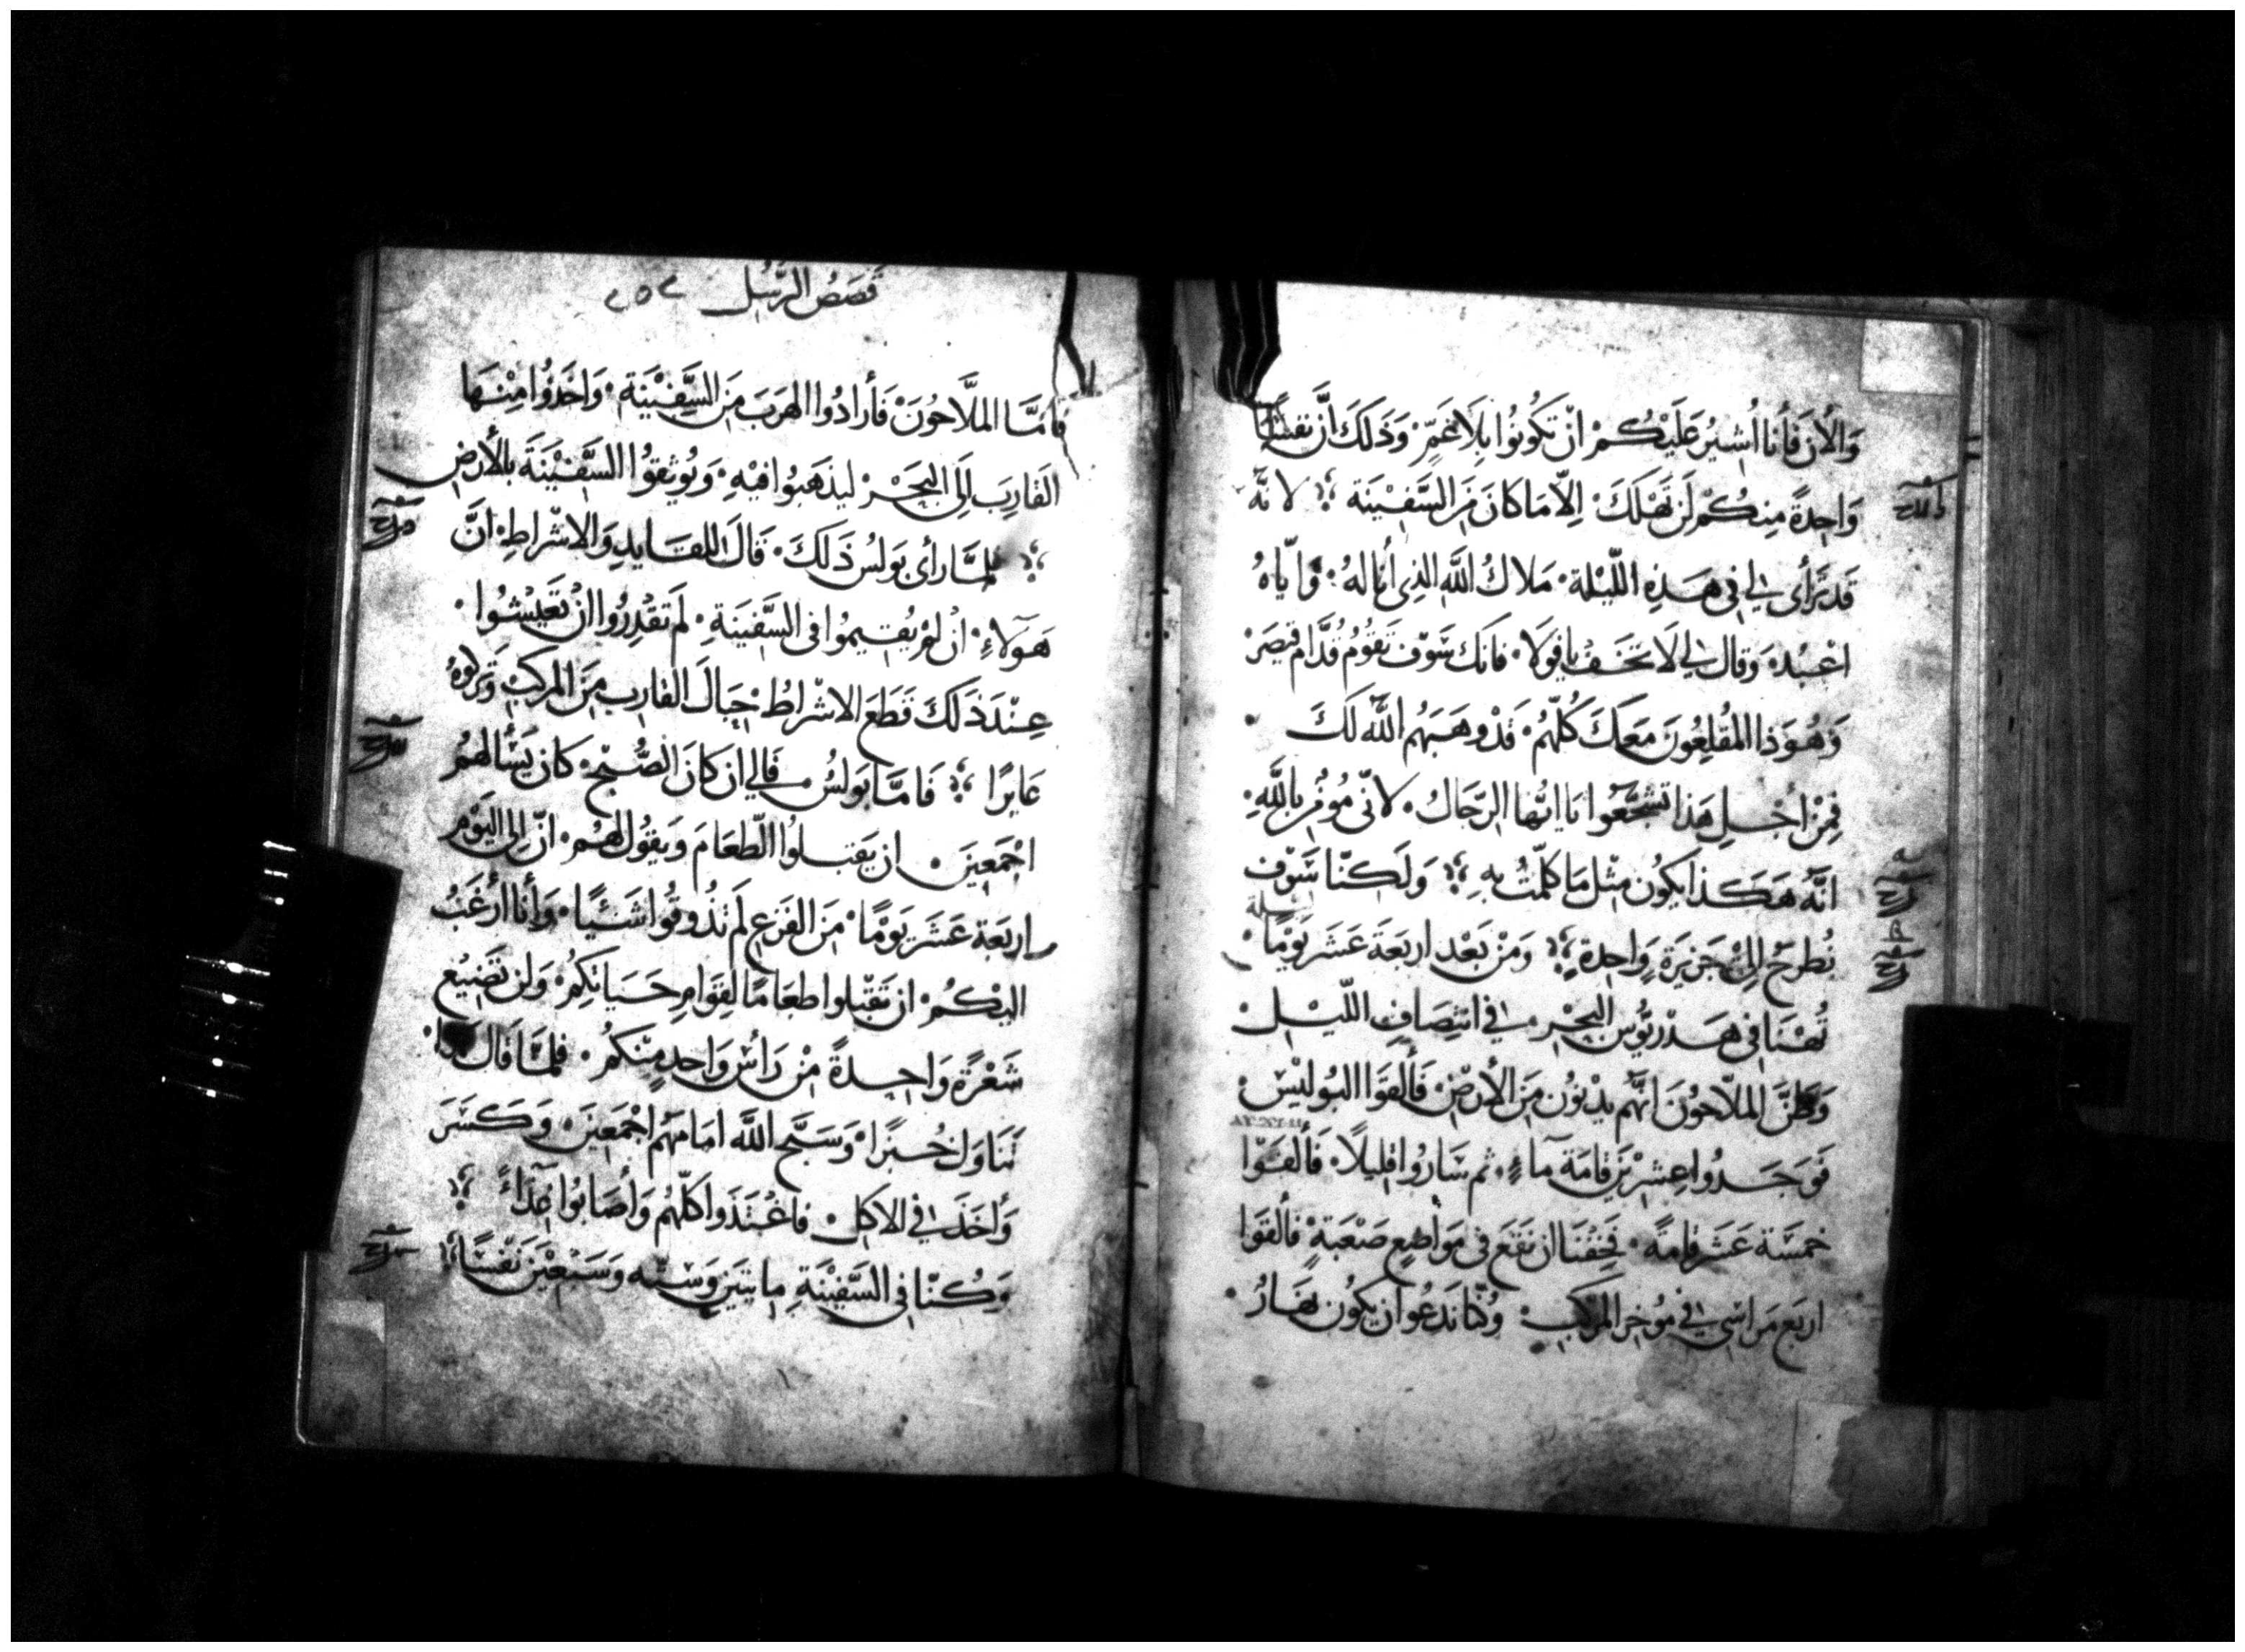 وَالأنَ فَأنا اُشيرُ عَلَيْكُمْ انْ تَكُونُوا بِلَا غَمٍّ · وَذَلَكَ انَّ نفسًا
وَاحِدةً مِنكُمْ لَن تَهْلكَ · اِلّا مَا كانَ مَنَ السَّفيْنَة ؛ لانهّ
قَد تَرَأى لي فى هَذِهِ اللّيْلة · مَلاكُ اللَّه الذِى أنَا لهُ · وَايّاهُ
اعْبُدهَ وَقال لي لَا تخَفْ يافولَا · فانكَ سَوْف تقُومُ قُدَّام قيصَرْ
وَهُوَذا المُقْلِعُونَ مَعكَ كُلّهُم · قَدْ وهَبَهُم اللَّه لكَ ·
فِمنْ اجْلِ هَذا تشجَّعُوا يَا ايُّها الرّجَال · لانّى مُومِنُ بِاللَّهِ ·
انَّهُ هَكَذا يكُون مثْل مَا كلّمْتُ بهِ ؛ وَلَكنّا سَوْف
نُطرَحُ اِلَى جَزيَرَةٍ وَاحِدة ؛ وَمنْ بَعْد اربَعَة عَشَر يَوْمًا · ليلة
تُهْنَا فى هَدْريُوس البَحْر · في انْتِصَافِ اللّيْلْ ·
وَظَنَّ الملّاحوُنَ انَّهُم يدْنوُن مَنَ الأرضْ · فَألقوَا البُوليْسْ ·
فَوَجَدوُا عِشرْينَ قَامَة ماءٍ · ثم سَاروُا قليلًا · فَألقَوّا
خمسَة عَشَر قامةً · فَخِفْنَا ان نَقَع فى موَاضِعٍ صَعْبَةٍ فألقَوَا
اربَع مَراسي في مُوخر المَرْكبْ · وكُنّا نَدعُوا ان يكُون نهَارُ ·
قصَصُ الرّسُل ٢٥٢
فامَّا الملَّاحُونَ فَأرادُوا الهرَبَ مَنَ السَّفيْنَة · وَاخَذوُا مِنْهَا
القارِبَ اِلَى البَحَرْ ليذهَبوُا فيْهِ · وَيُوثقوُا السَّفيْنَةَ بالأرضِ
؛ فلمَّا رأى بَولسُ ذَلكَ · قَالَ للقَايدِ وَالاشْراطِ · انَّ
هَوُلاءِ · انْ لمْ يُقيمُوا فى السَّفينَةِ · لَم تقْدِرُوا انْ تَعيْشُوا ·
عِنْدَ ذَلكَ قَطَع الاشْراطُ حِبَالَ القاربِ مِنَ المرْكبْ وَتركوهُ
عَايرًا ؛ فَامَّا بَولسُ فالي ان كَانَ الصُّبْح · كان يَسْألهمُ
اجْمَعينَ · ان يَقبلوُا الطّعَامَ وَيقُولُ لهُم · انّ اِلى اليَوْم
اربَعَة عَشَر يَوْمًا · مَن الفَزعِ لَم تذُوقوُا شَئيًا · وَأنا ارْغَبُ
اليْكمُ · ان تَقْبلوا طعَامًا لقِوَامِ حَيَاتكِمُ · وَلن تضيْع
شَعْرَةٌ وَاحِدةً مْن رَأسْ وَاحدٍ منْكمُ · فلمَّا قَال هذا ·
تَنَاوَل خُبزًا · وَسَبَّح اللَّه امَامهُم اجْمَعينَ · وَكسَرَ
وَاخَذَ في الاكل · فاغْتذَوا كلّهُم وَأصَابُوا غذَاءً ؛
وَكُنّا فى السَّفيْنَةِ مايتين وَستّه وَسَبْعيْنَ نَفْسًا ؛